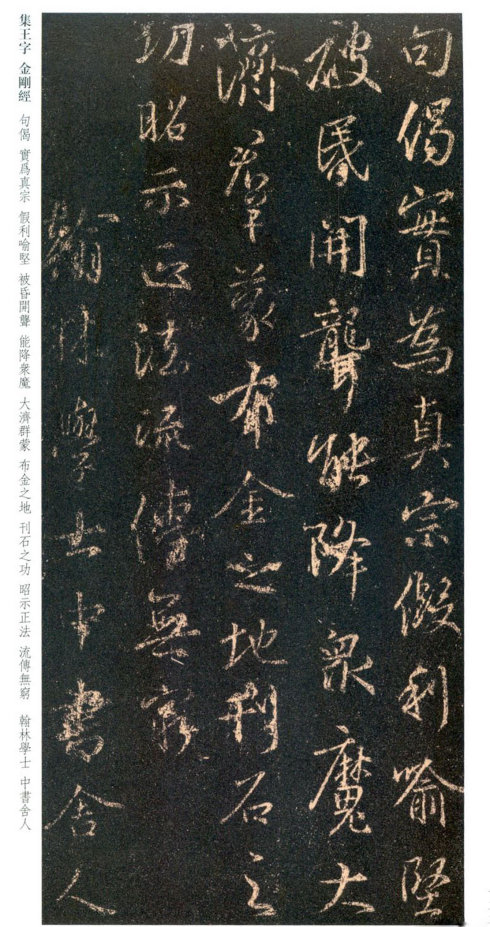 句偈實為真宗假利喻堅
破昏開聾能降衆魔大
濟群蒙布金之地刊石之
功昭示正法流傳無窮
翰林學士中書舍人
集王字 金剛經 句偈 實爲真宗 假利喻堅 被昏開聲 能降衆魔 大濟群蒙 布金之地 刊石之功 昭示正法 流傳無窮 翰林學士 中書舍人